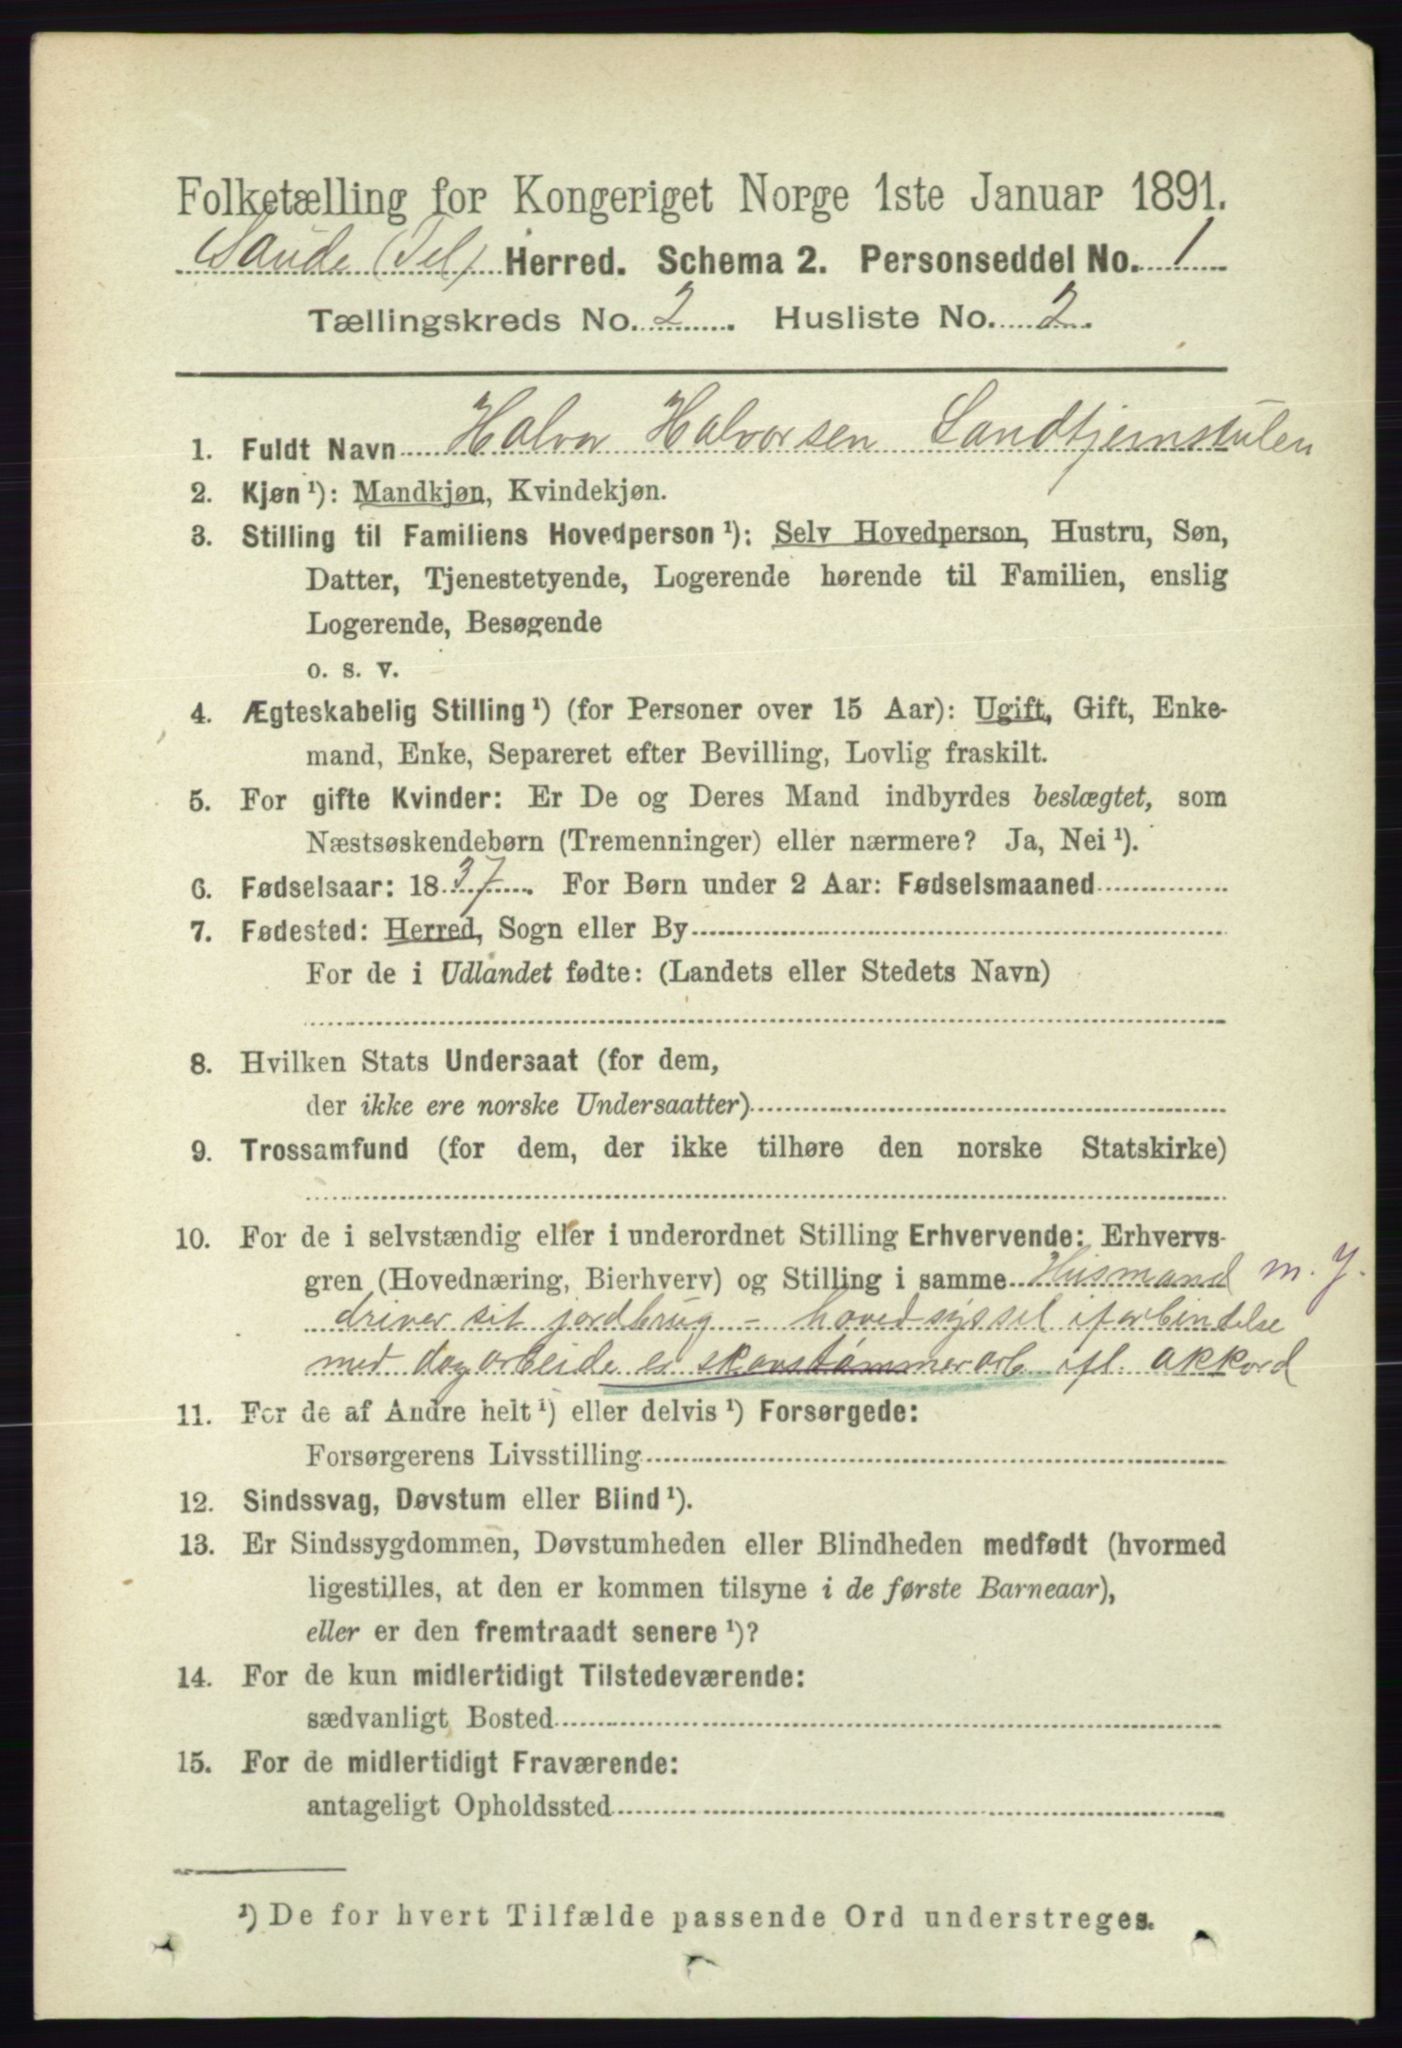 Folketælling for Kongeriget Norge 1ste Januar 1891.
Saude (Tel) Herred. Schema 2. Personseddel No. 1
Tællingskreds No. 2. Husliste No. 2.
1. Fuldt Navn Halvor Halvorsen Sandtjernstulen
2. Kjøn ¹): Mandkjøn, Kvindekjøn.
3. Stilling til Familiens Hovedperson ¹): Selv Hovedperson, Hustru, Søn,
Datter, Tjenestetyende, Logerende hørende til Familien, enslig
Logerende, Besøgende
o. s. v.
4. Ægteskabelig Stilling ¹) (for Personer over 15 Aar): Ugift, Gift, Enke-
mand, Enke, Separeret efter Bevilling, Lovlig fraskilt.
5. For gifte Kvinder: Er De og Deres Mand indbyrdes beslægtet, som
Næstsøskendebørn (Tremenninger) eller nærmere? Ja, Nei ¹).
6. Fødselsaar: 1837. For Børn under 2 Aar: Fødselsmaaned
7. Fødested: Herred, Sogn eller By
For de i Udlandet fødte: (Landets eller Stedets Navn)
8. Hvilken Stats Undersaat (for dem,
der ikke ere norske Undersaatter)
9. Trossamfund (for dem, der ikke tilhøre den norske Statskirke)
10. For de i selvstændig eller i underordnet Stilling Erhvervende: Erhvervs-
gren (Hovednæring, Bierhverv) og Stilling i samme Husmand m. J.
driver sit jordbrug - hovedsyssel i forbindelse
med dagarbeide er skovtømmerarb. ifl. akkord
11. For de af Andre helt ¹) eller delvis ¹) Forsørgede:
Forsørgerens Livsstilling
12. Sindssvag, Døvstum eller Blind ¹).
13. Er Sindssygdommen, Døvstumheden eller Blindheden medfødt (hvormed
ligestilles, at den er kommen tilsyne i de første Barneaar),
eller er den fremtraadt senere ¹)?
14. For de kun midlertidigt Tilstedeværende:
sædvanligt Bosted
15. For de midlertidigt Fraværende:
antageligt Opholdssted
¹) De for hvert Tilfælde passende Ord understreges.